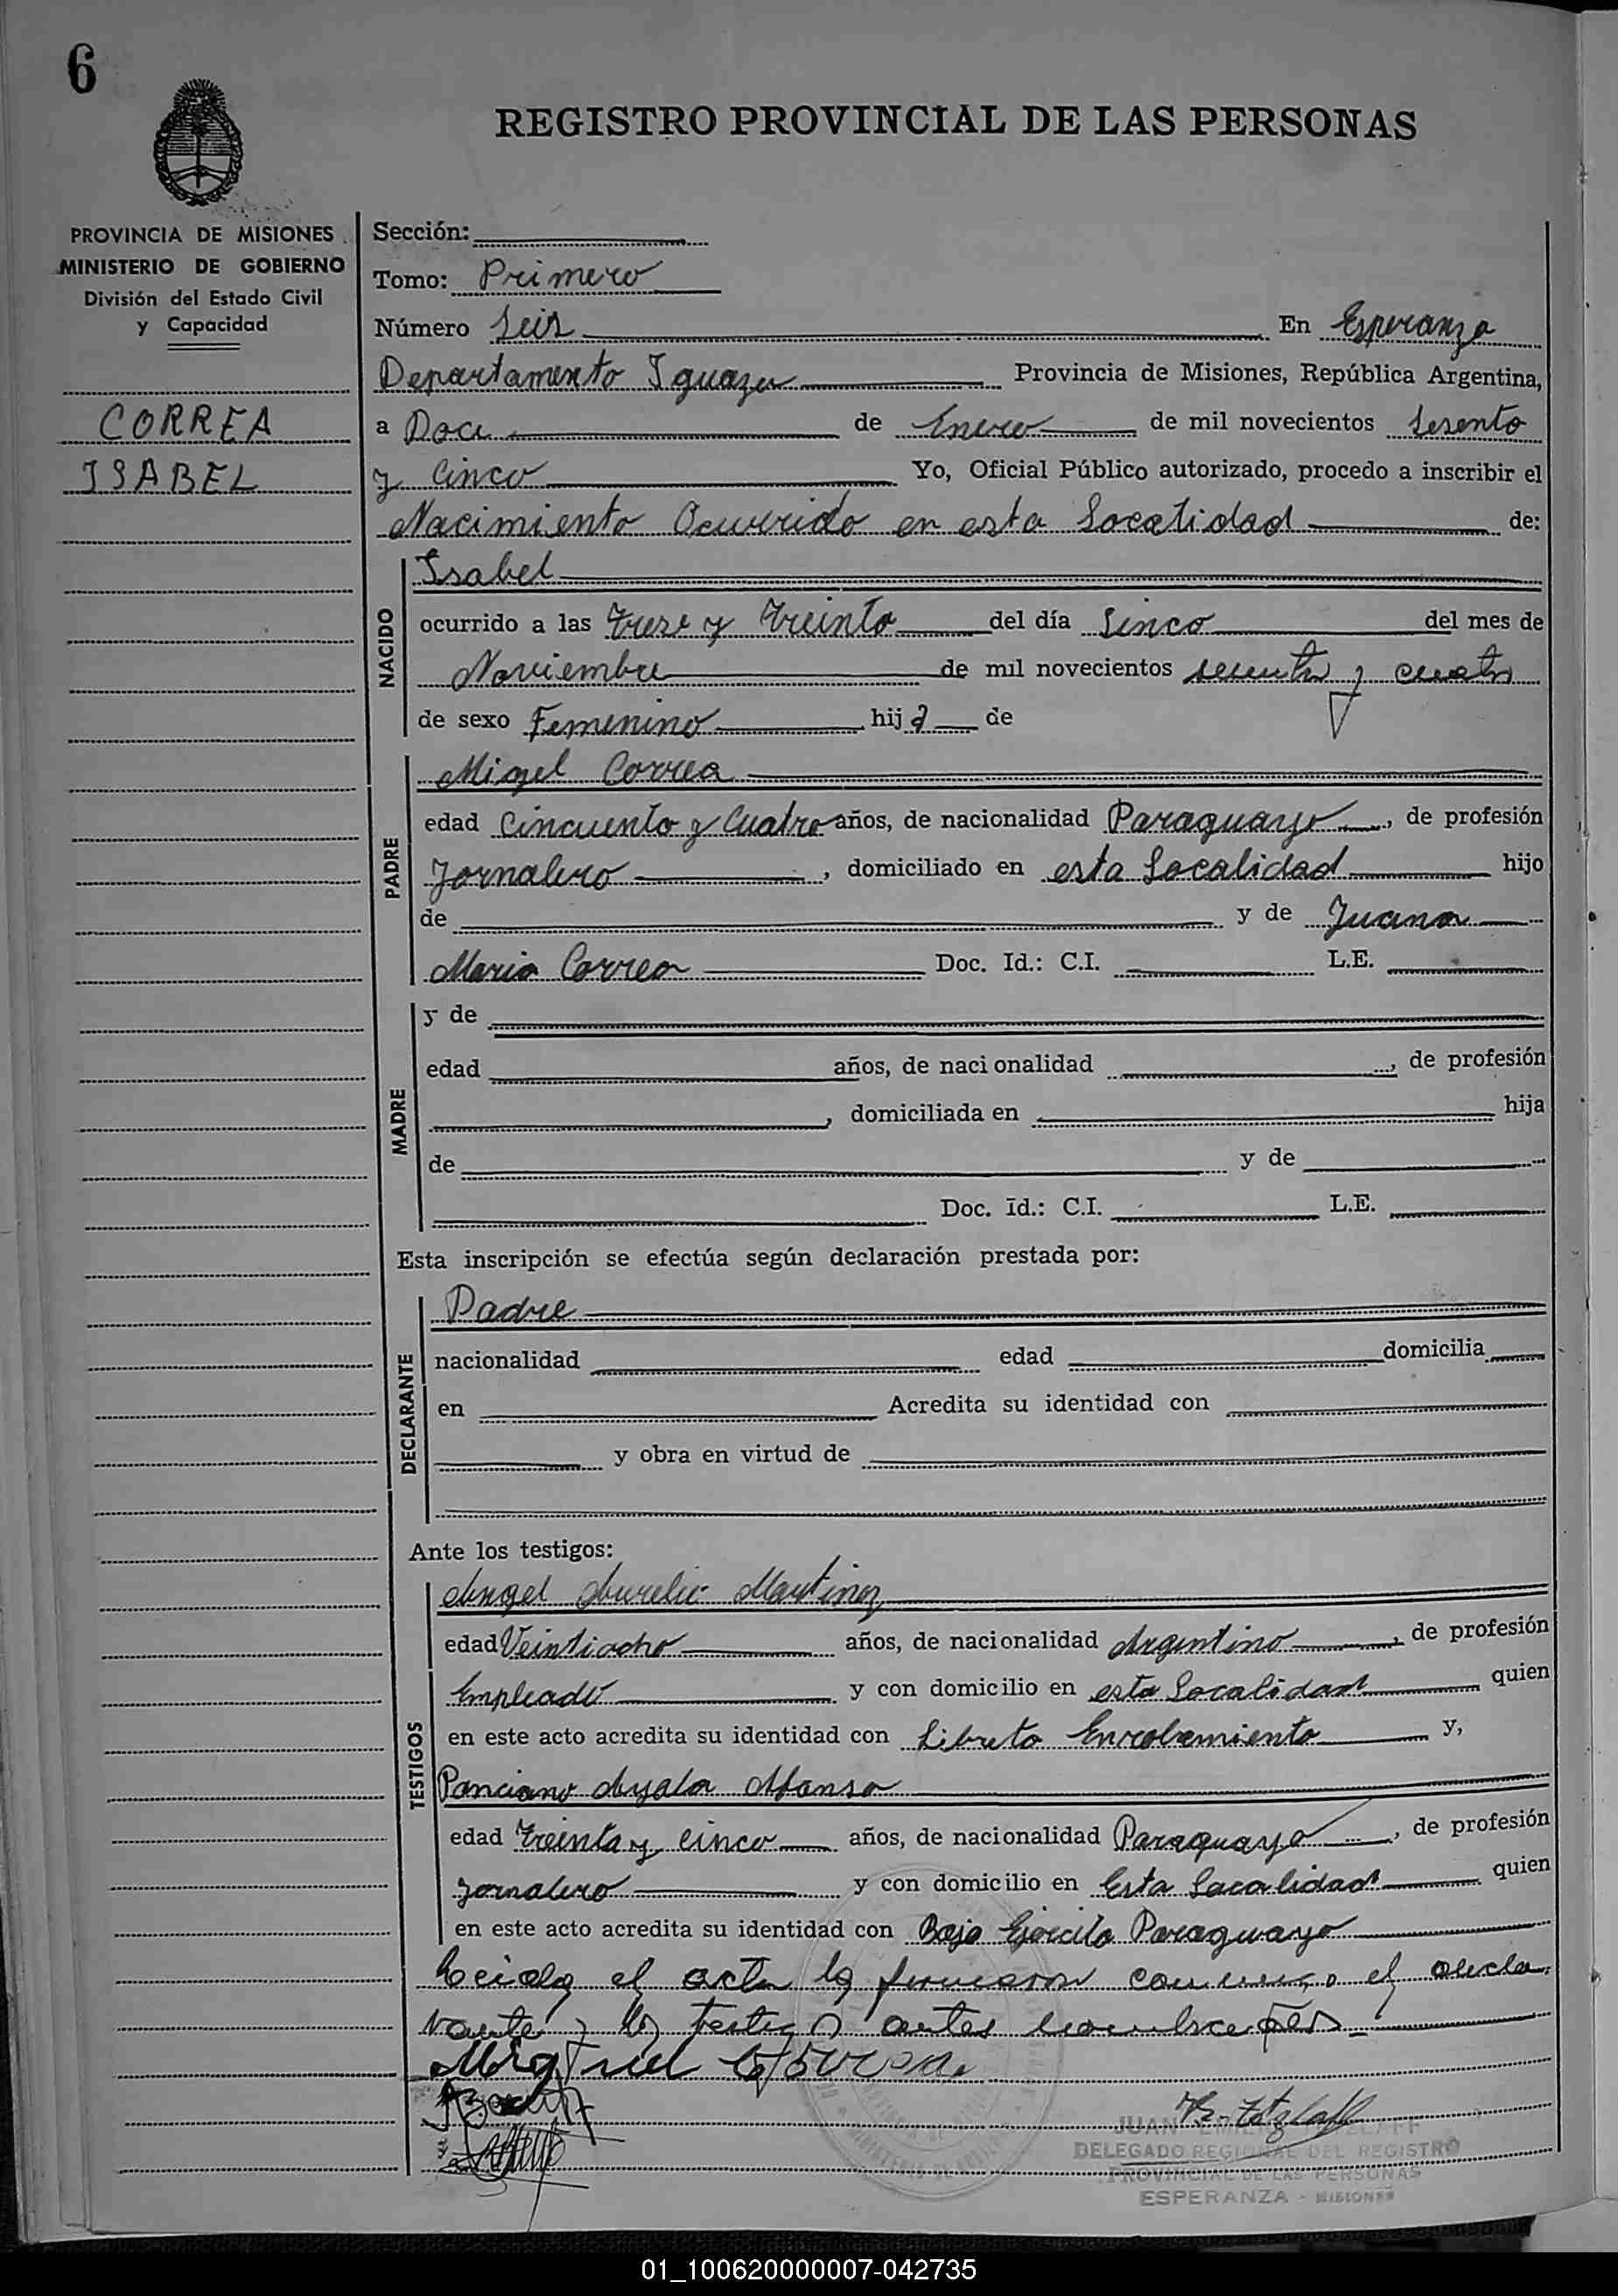 6
REGISTRO PROVINCIAL DE LAS PERSONAS
PROVINCIA DE MISIONES
MINISTERIO DE GOBIERNO
División del Estado Civil
y Capacidad
CORREA
ISABEL
Sección:
Tomo: Primero
Número Seis En Esperanza
Departamento Iguazu Provincia de Misiones, República Argentina,
a Doce de Enero de mil novecientos Sesenta
y Cinco Yo, Oficial Público autorizado, procedo a inscribir el
Nacimiento Ocurrido en esta Localidad de:
NACIDO
Isabel
ocurrido a las Trese y Treinta del día Sinco del mes de
Noviembre de mil novecientos sesenta y cuatro
de sexo Femenino hija de
PADRE
Migel Correa
edad Cincuenta y Cuatro años, de nacionalidad Paraguayo, de profesión
Jornalero, domiciliado en esta Localidad hijo
de y de Juana
Maria Correa Doc. Id.: C.I. L.E.
MADRE
y de
edad años, de nacionalidad , de profesión
, domiciliada en hija
de y de
Doc. Id.: C.I. L.E.
Esta inscripción se efectúa según declaración prestada por:
DECLARANTE
Padre
nacionalidad edad domicilia
en Acredita su identidad con
y obra en virtud de
Ante los testigos:
TESTIGOS
Angel Aurelio Martinez
edad Veintiocho años, de nacionalidad Argentino, de profesión
Empleado y con domicilio en esta Localidad quien
en este acto acredita su identidad con Libreta Enrolamiento y,
Ponciano Ayala Alfonso
edad Treinta y Cinco años, de nacionalidad Paraguayo, de profesión
Jornalero y con domicilio en Esta Localidad quien
en este acto acredita su identidad con Baja Ejercito Paraguayo
Leida el acta la firmaron conmigo el decla
rante y los testigos antes
JUAN
DELEGADO REGIONAL DEL REGISTRO
PROVINCIAL DE LAS PERSONAS
ESPERANZA - MISIONES
01_100620000007-042735